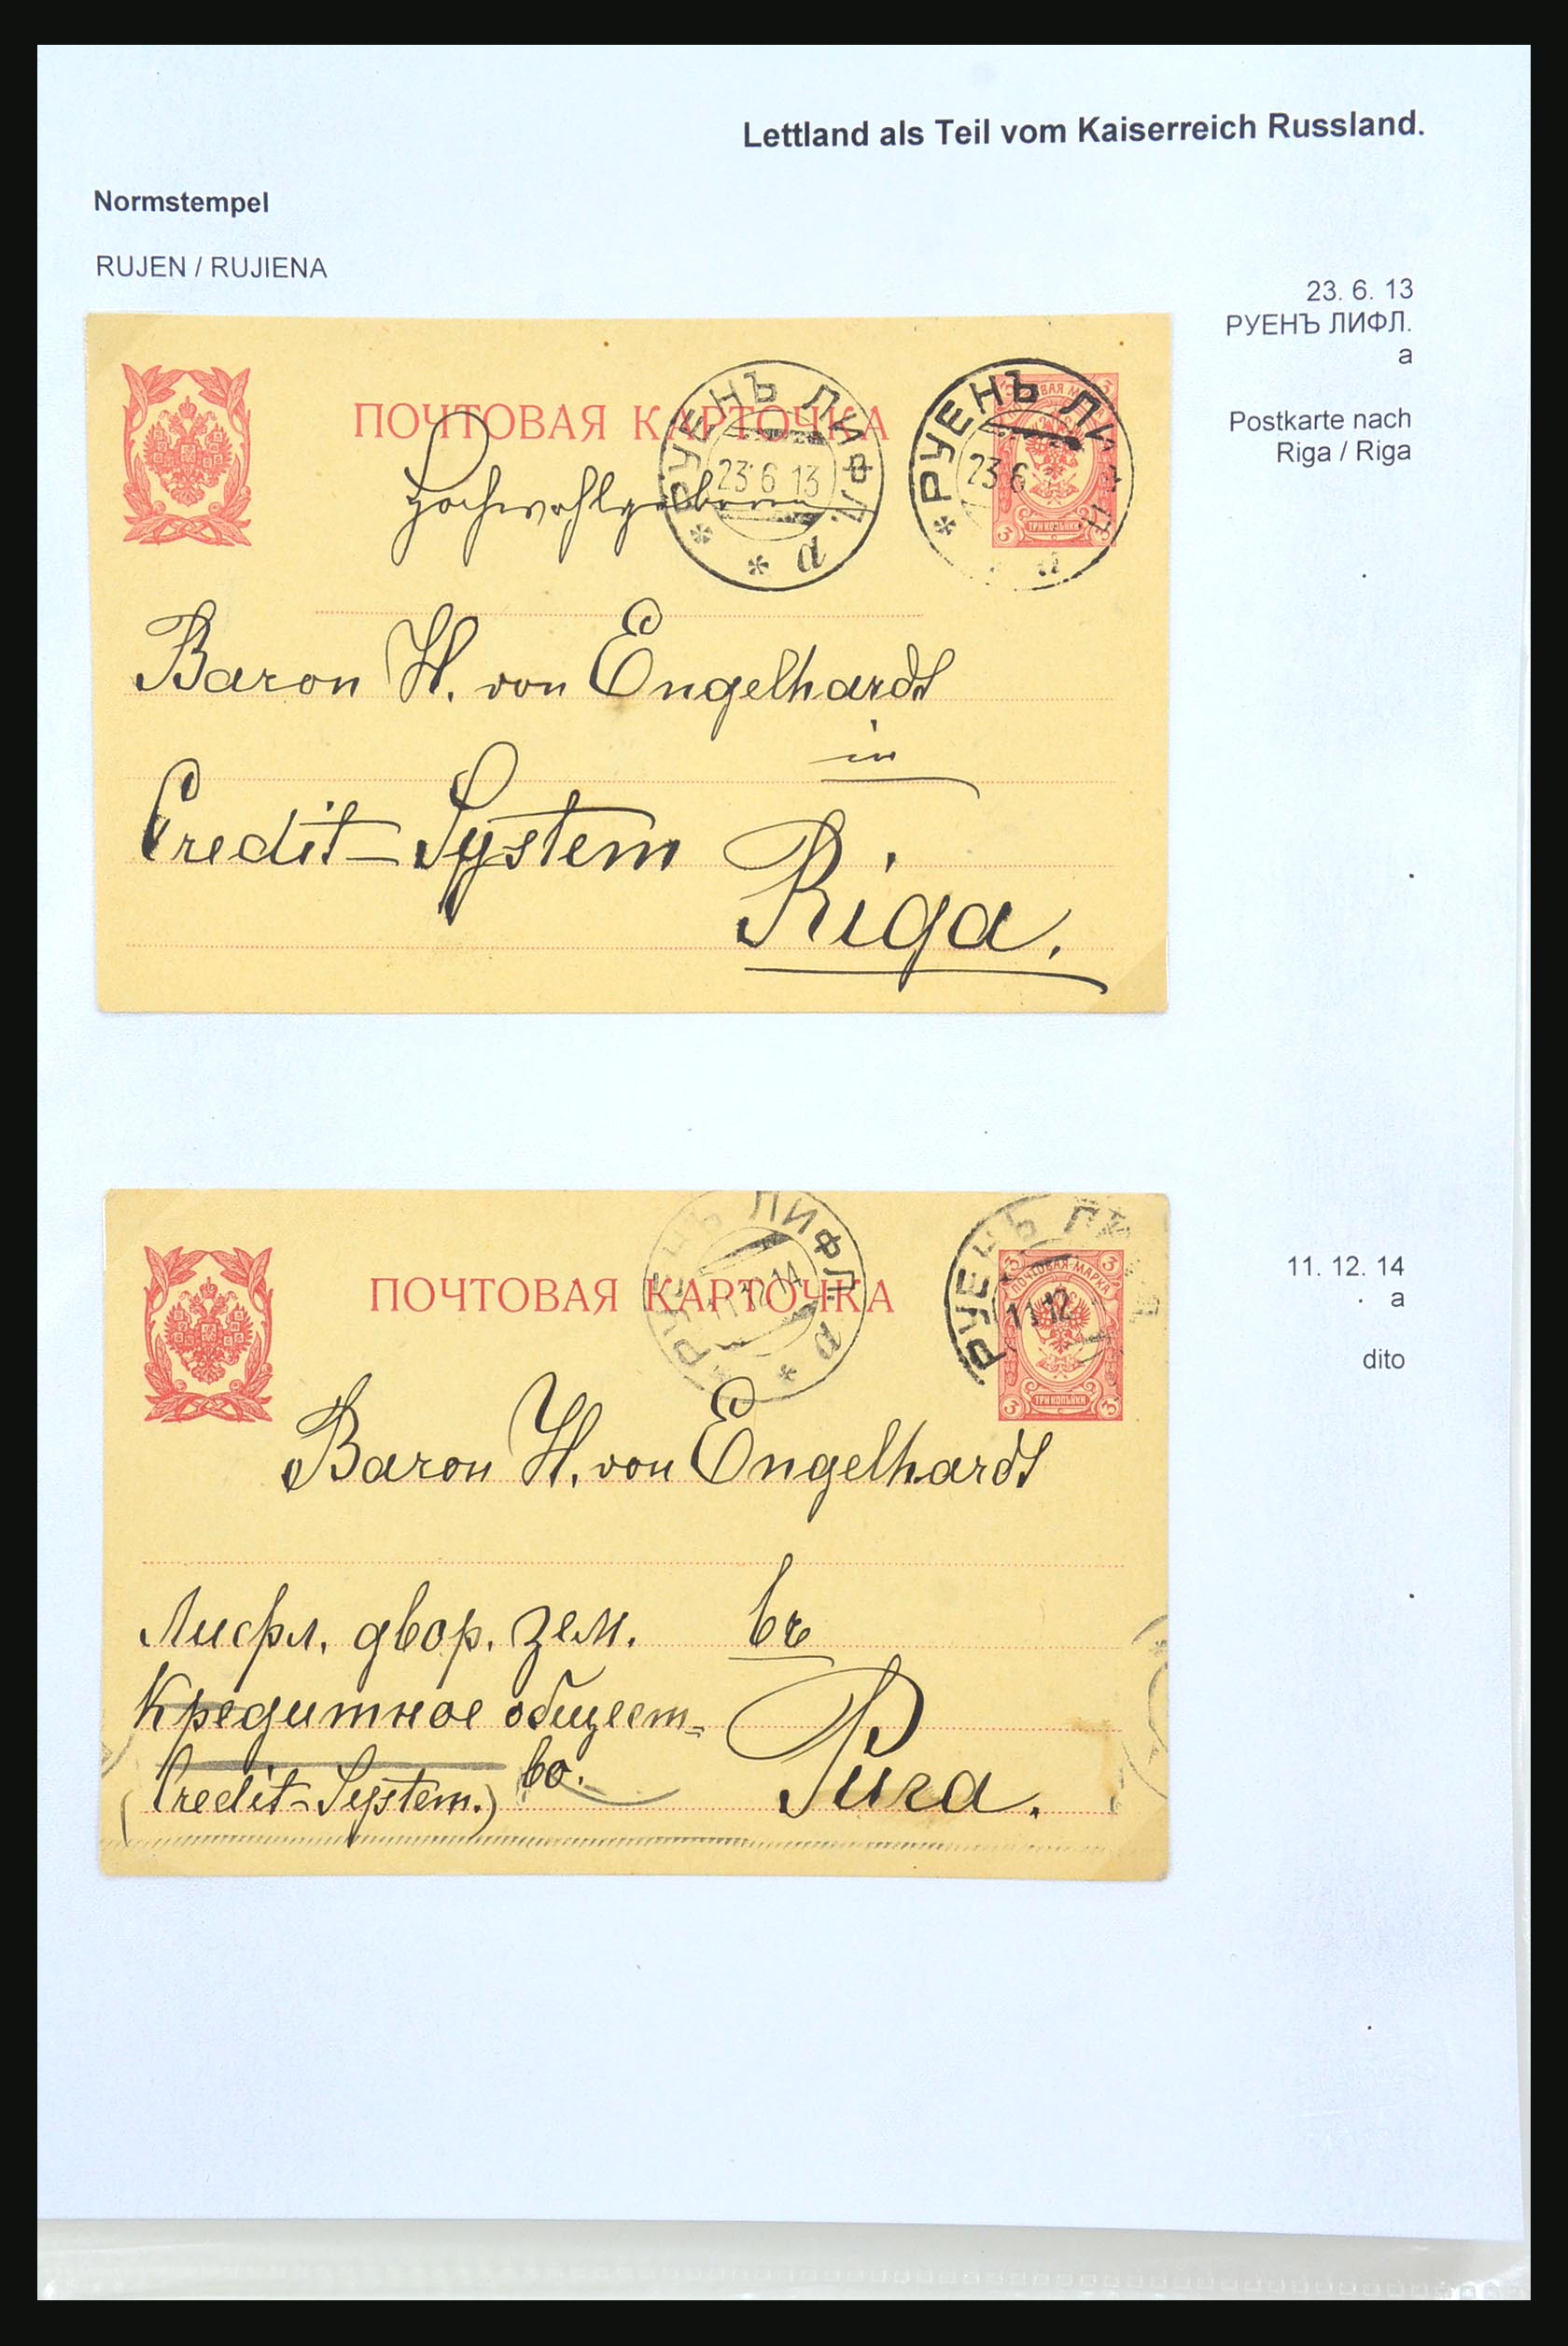 Lettland als Teil vom Kaiserreich Russland.
Normstempel
RUJEN / RUJIENA
23. 6. 13
РУЕНЪ ЛИФЛ.
a
Postkarte nach
Riga / Riga
ПОЧТОВАЯ КАРТОЧКА
РУЕНЪ ЛИФЛ.
23 6 13
* * a
РУЕНЪ ЛИ
23 6
ТРИ КОПѢЙКИ
3 3
Baron H. von Engelhardt
in
Credit-System
Riga.
11. 12. 14
a
dito
ПОЧТОВАЯ КАРТОЧКА
РУЕНЪ ЛИФЛ.
11 12 14
* a
РУЕНЪ
11 12
3 3
ПОЧТОВАЯ МАРКА
ТРИ КОПѢЙКИ
3 3
Baron H. von Engelhardt
Лифл. двор. зем. въ
Кредитное общест=
во.
(Credit-System.)
Рига.